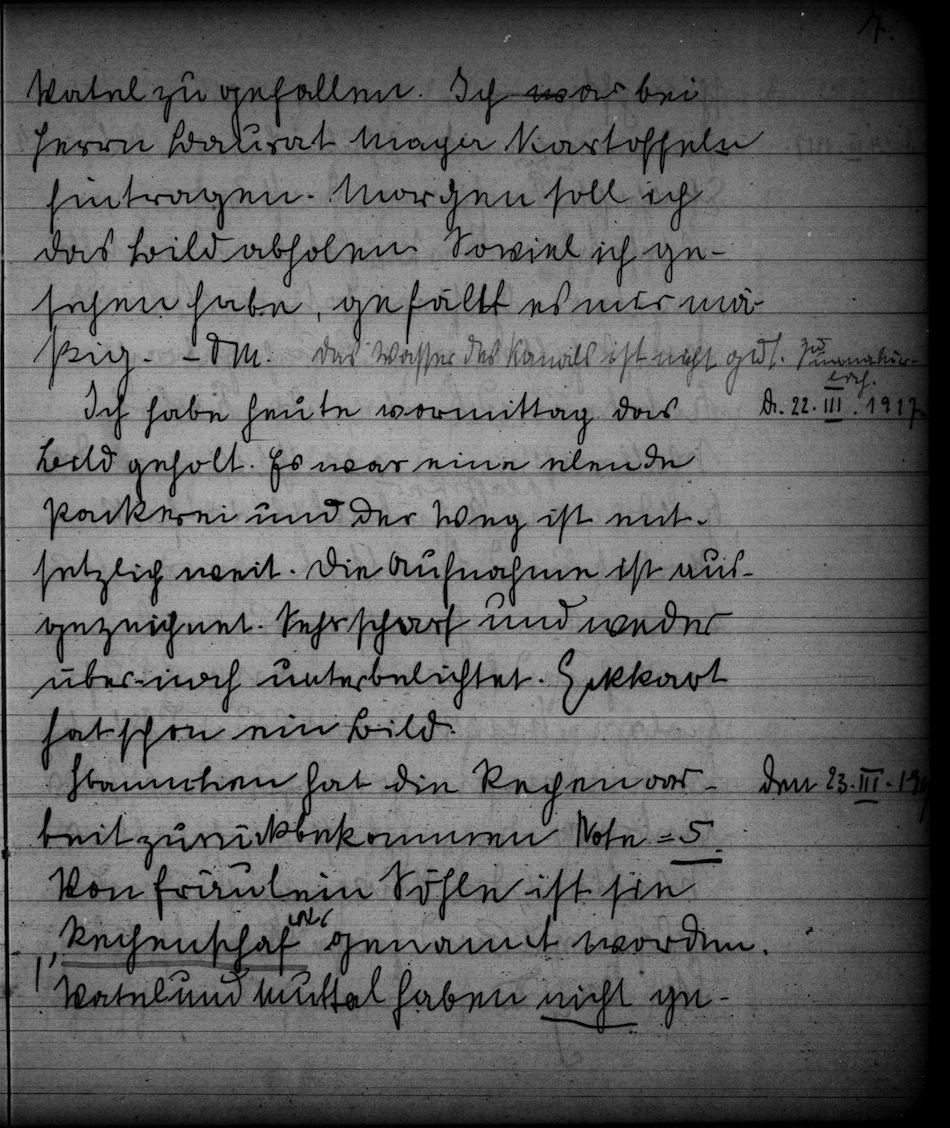 7.
Vatel zu gefallen. Ich war bei
Herrn Baurat Mayer Kartoffeln
hintragen. Morgen soll ich
das Bild abholen. Soviel ich ge-
sehen habe, gefällt es mir mä-
ßig. - Das Wasser des Kanals ist nicht gut. zu unnatür-
lich.
Ich habe heute vormittag das D. 22. III. 1917.
Bild geholt. Es war eine elende
Packerei und der Weg ist ent-
setzlich weit. Die Aufnahme ist aus-
gezeichnet. Sehr scharf und weder
über- noch unterbelichtet. Eckkart
hat schon ein Bild.
Hannchen hat die Rechenar- Den 23. III. 191
beit zurückbekommen Note = 5.
Von Fräulein Söhle ist sie
„Rechenschaf“ genannt worden.
! Vatel und Muttel haben nicht ge-